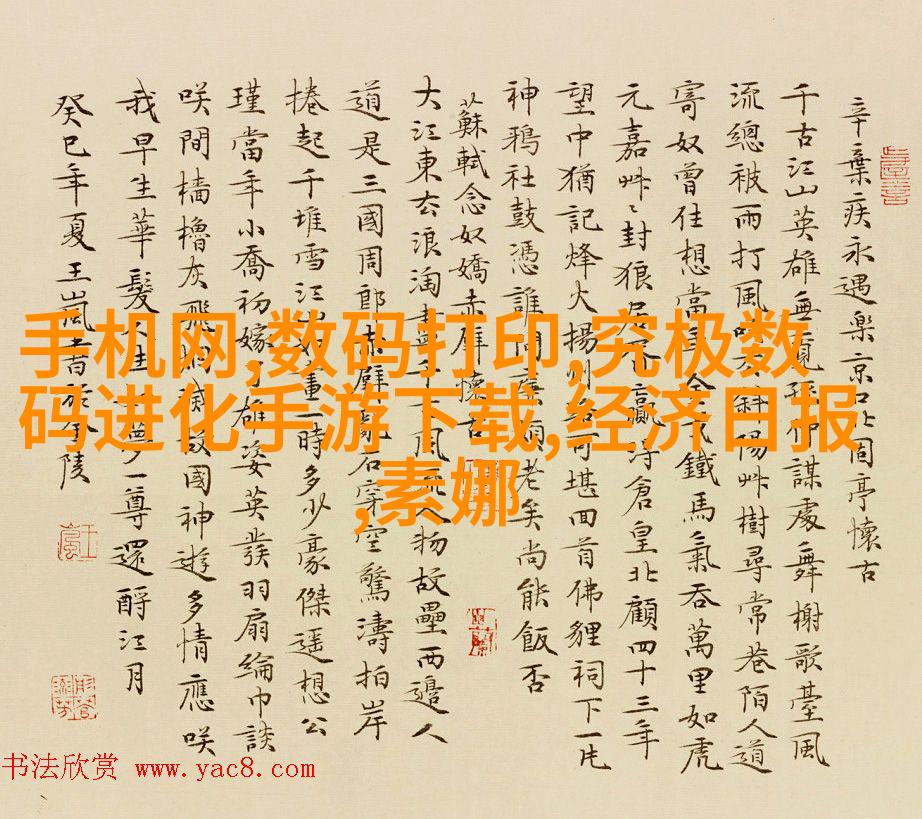 辛棄疾永遇樂京口北固亭懷古
千古江山英雄無覓孫仲謀處舞榭歌臺風
流總被雨打風吹去斜陽艸樹尋常巷陌人道
寄奴曾住想當年金戈鐵馬氣吞萬里如虎
元嘉艸艸封狼居胥贏得倉皇北顧四十三年
望中猶記烽火揚州路可堪回首佛貍祠下一片
神鴉社鼓憑誰問廉頗老矣尚能飯否
蘇軾念奴嬌赤壁懷古
大江東去浪淘盡千古風流人物故壘西邊人
道是三國周郎赤壁亂石穿空驚濤拍岸
捲起千堆雪江山如畫一時多少豪傑遥想公
瑾當年小喬初嫁了雄姿英發羽扇綸巾談
咲間檣櫓灰飛煙滅故國神遊多情應咲
我早生華髮人生如夢一尊還酹江月
癸巳年夏王嵐書於金陵
手机网,数码打印,究极数
码进化手游下载,经济日报
,素娜
书法欣赏 www.yac8.com